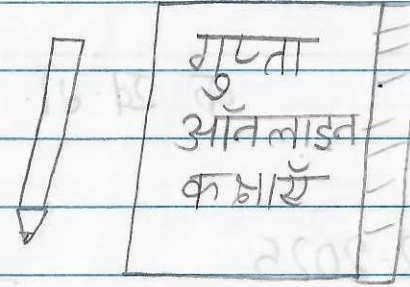 गुप्ता
ऑनलाइन
कक्षाएँ